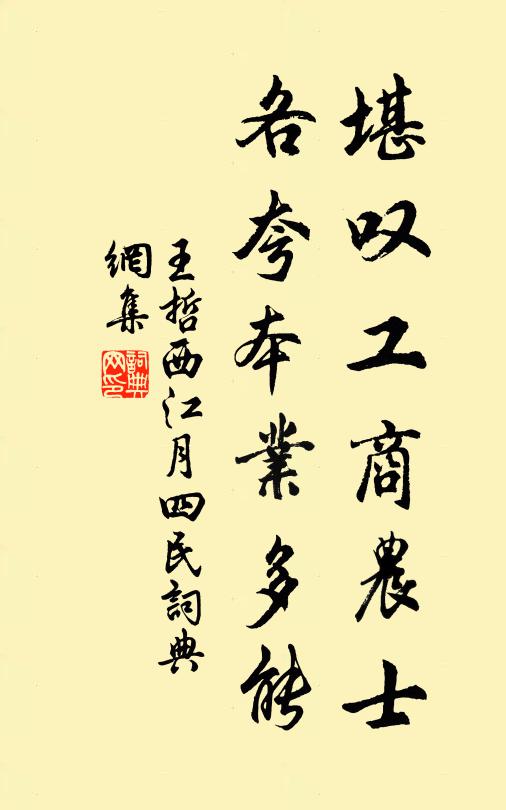 堪叹工商農士
各夸本業多能
王哲西江月四民詞典
網集
詞典
网印